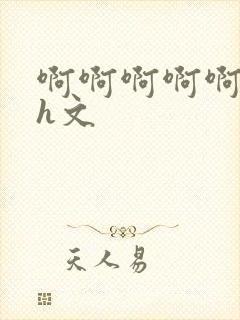 啊啊啊啊啊
h文
天人易